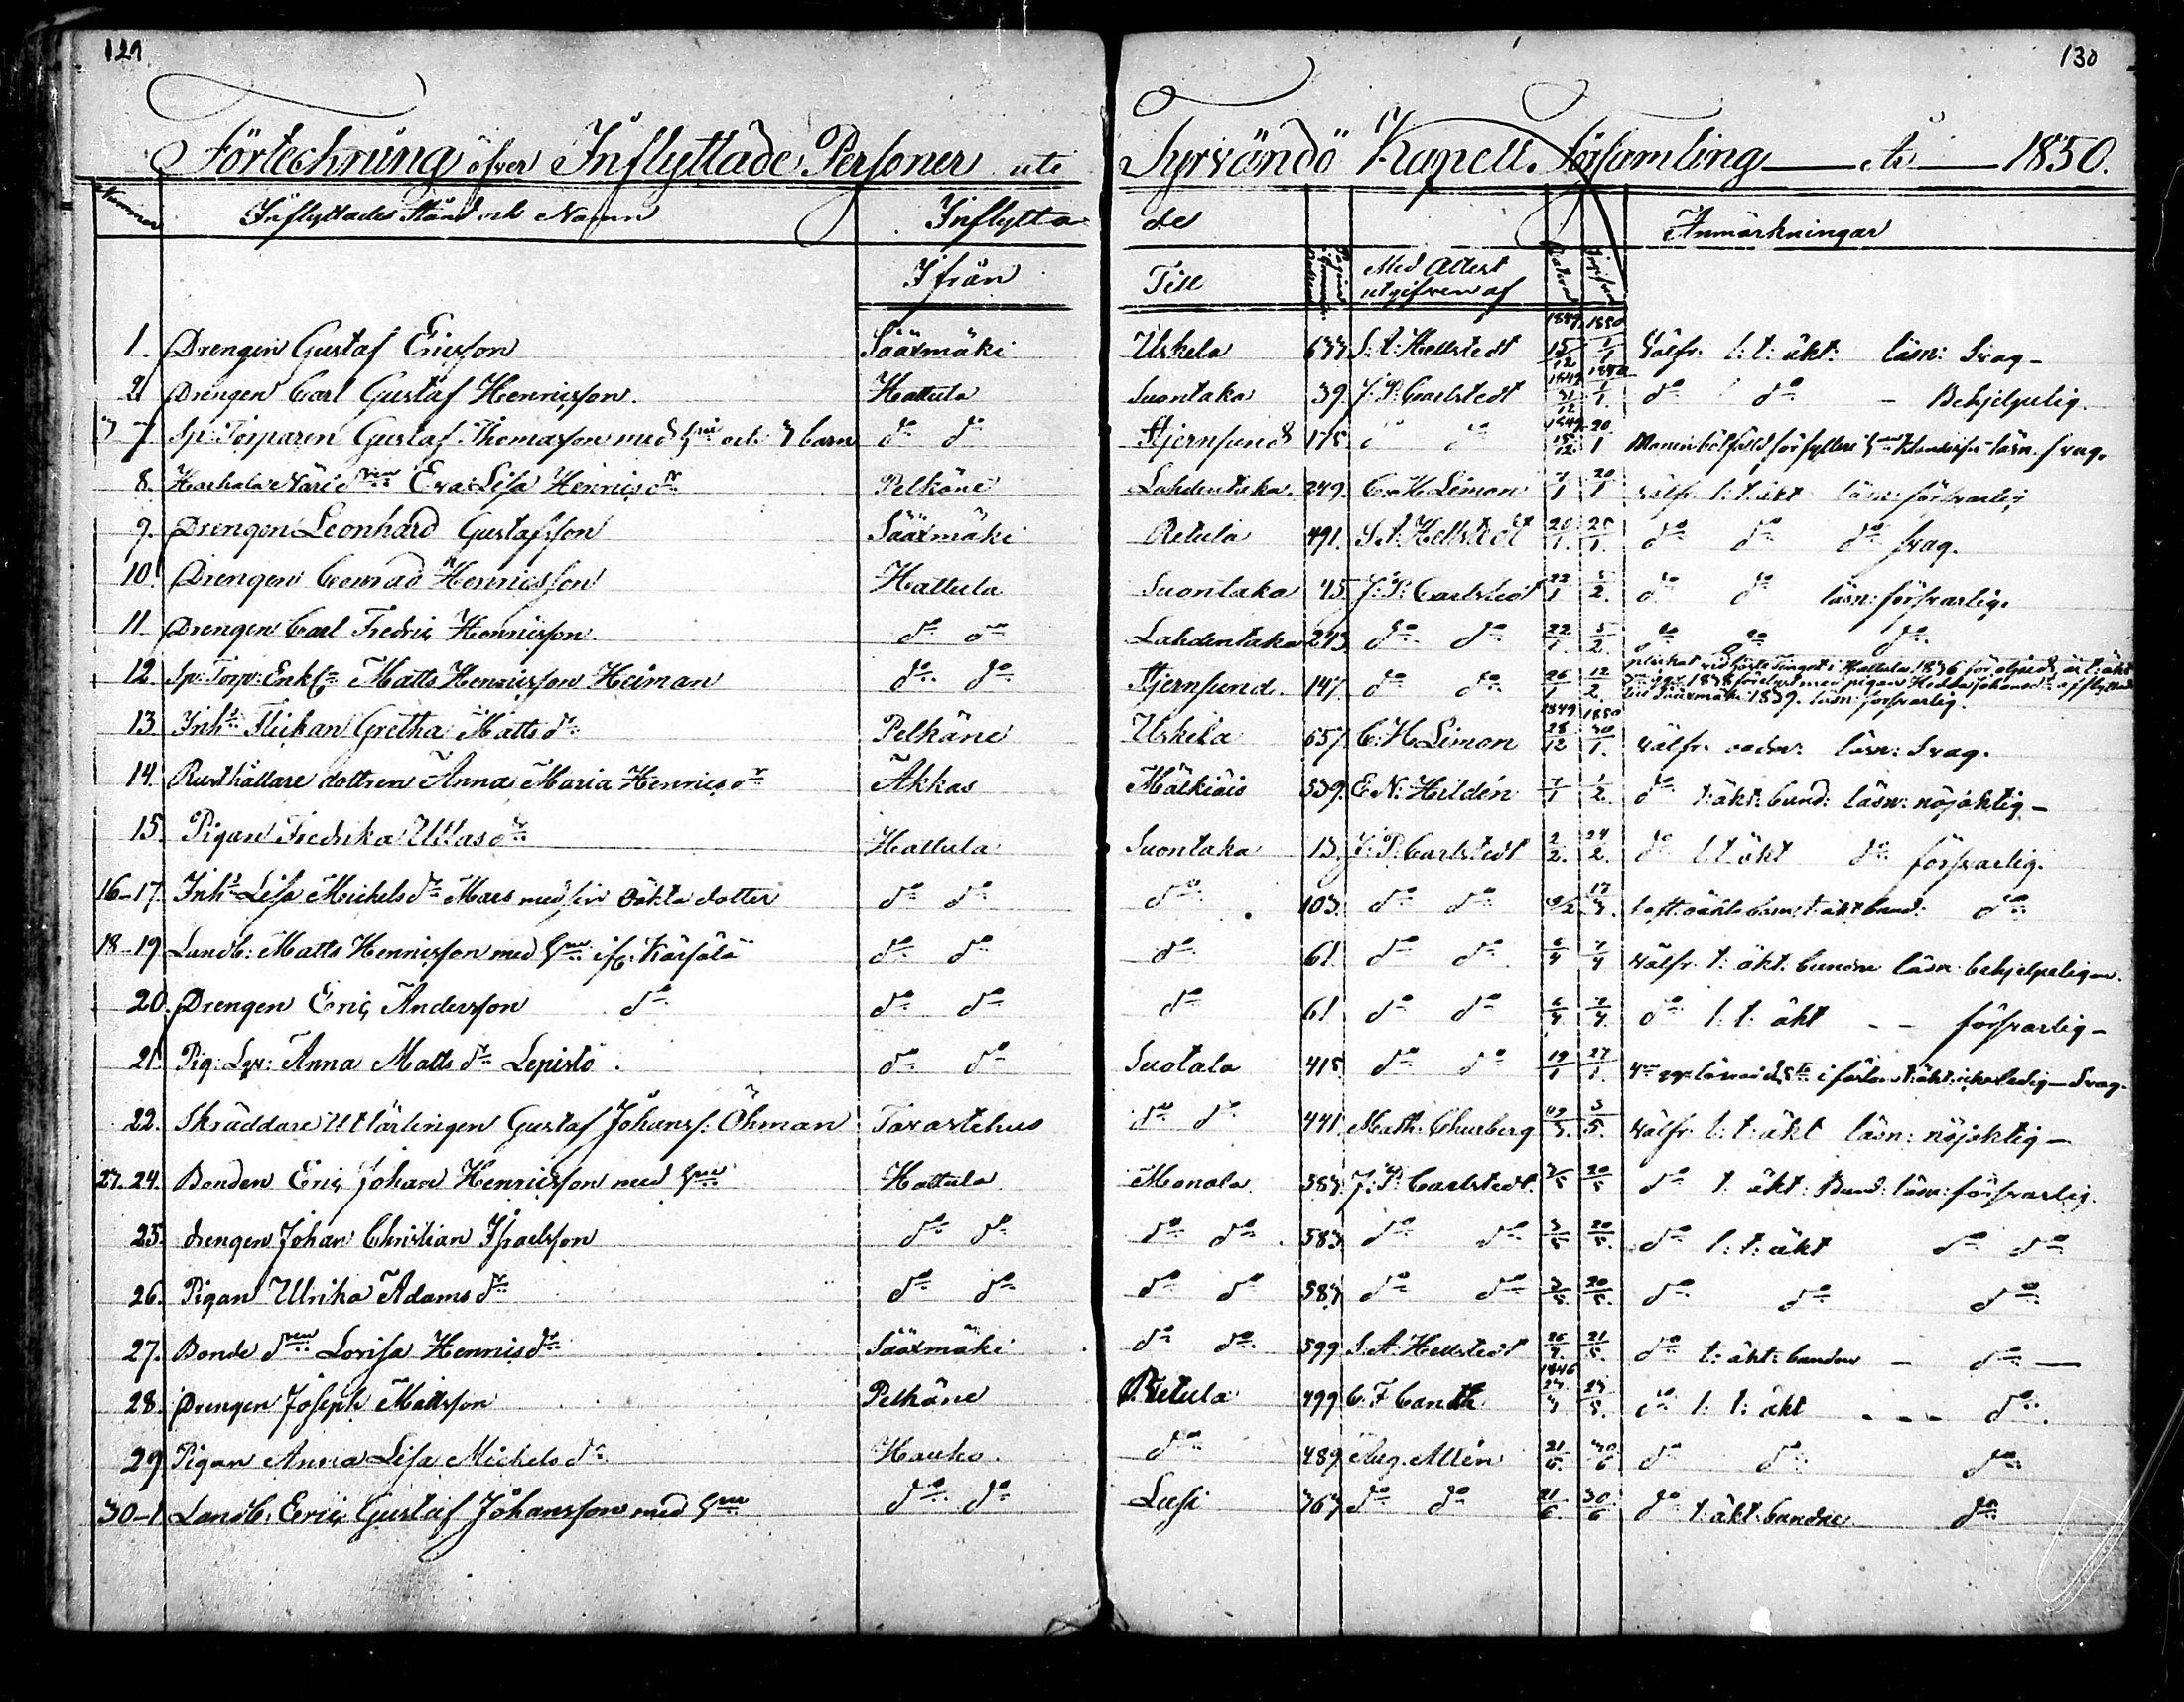 129 130
Förtechning öfver Inflyttade Personer uti Tyrvändö Kapell Församling År 1850.
Nummer Inflyttades Stånd och Namn Inflyttade Anmärkningar
Ifrån Till Med Attest utgifven af
1. Drengen Gustaf Ericsson Sääxmäki Uskela 633 S. A. Hellstedt 1849 15/12 1850 1/1 Välfr. l: t: äkt: läsn: Svag -
2. Drengen Carl Gustaf Henricsson. Hattula Suontaka 39. J. P. Carlstedt 1849 31/12 1/1. do do - Behjelpelig.
3-7. Sp: Torparen Gustaf Thomasson med hu och 3 barn do do Stjernsund 175. do do 1849 15/12 20/1 läsn. svag.
8. Eva Lisa Henricsdr Pelkäne Lahdentaka 249. C. H. Limon 7/1 20/1 Välfr. l: t: äkt läsn: försvarlig
9. Drengen Leonhard Gustafsson Sääxmäki Retula 491. S. A. Hellstedt 20/1. 25/1. do do do svag.
10. Drengen Conrad Henricsson Hattula Suontaka 45. J: P: Carlstedt 22/1 5/2. do do läsn: försvarlig.
11. Drengen Carl Fredric Henricsson do do Lahdentaka 243 do do 22/1. 5/2. do do do
12. Sp: Torp: Enkl. Matts Henricsson Heiman do do Stjernsund. 147. do do 26/1 12/2. till Sääxmäki 1839. läsn: försvarlig.
13. Inhs Flickan Gretha Matts dr Pelkäne Uskila 657. C. H. Limon 1849 28/12 1850 30/1. Välfr. läsn: Svag.
14. Rusthållare dottren Anna Maria Henricsdr Akkas Mälkiäis 539. E. N: Hildén 7/1 1/2. do t: äkt: bund: läsn: nöjaktig -
15. Pigan Fredrika Ullasdr Hattula Suontaka 13. J. P. Carlstedt 2/2. 24/2. do l: t äkt do försvarlig.
16-17. Inhs Lisa Michelsdr Mars med sin oäkta dotter do do do 103. do do 17/3. do
18-19 Landb: Matts Henricsson med hu do do do 61. do do 6/4 7/4 Välfr. t: äkt: bundne läsn behjelpeligen.
20. Drengen Eric Andersson do do do do 61 do do 6/4. 7/4. do l: t: äkt - - försvarlig -
21. Pig: Anna Matts dr Lepistö. do do Suotala 415 do do 19/1 27/1. Svag.
22. Skräddare Utlärlingen Gustaf Johanss: Öhman Tavastehus do do 441. Math. Churberg 3/5. Välfr. l: t: äkt läsn: nöjaktig -
23. 24. Bonden Eric Johan Henricsson med hu Hattula Monala 583. J. P. Carlstedt. 3/5 20/5 do t: äkt: Bund: läsn: försvarlig.
25. drengen Johan Christian Israelsson do do do do 583. do do 3/5 20/5. do l: t: äkt do do
26. Pigan Ulrika Adams dr do do do do 583 do do 3/5. 20/5. do do do
27. Bonde dren Lovisa Henricsdr Sääxmäki do do 599 S. A. Hellstedt 26/4. 21/5. do t: äkt: bunden - do -
28. Drengen Joseph Mattsson Pelkäne Retula 499 C. F. Canth 1846 do l: t: äkt - - - do.
29 Pigan Anna Lisa Michelsdr Hauho. do 489. Aug. Allén do do do
30-1 Landb: Eric Gustaf Johansson med hu do do Lusi 363 do do 21/6. 30/6 do t: äkt: bundne do